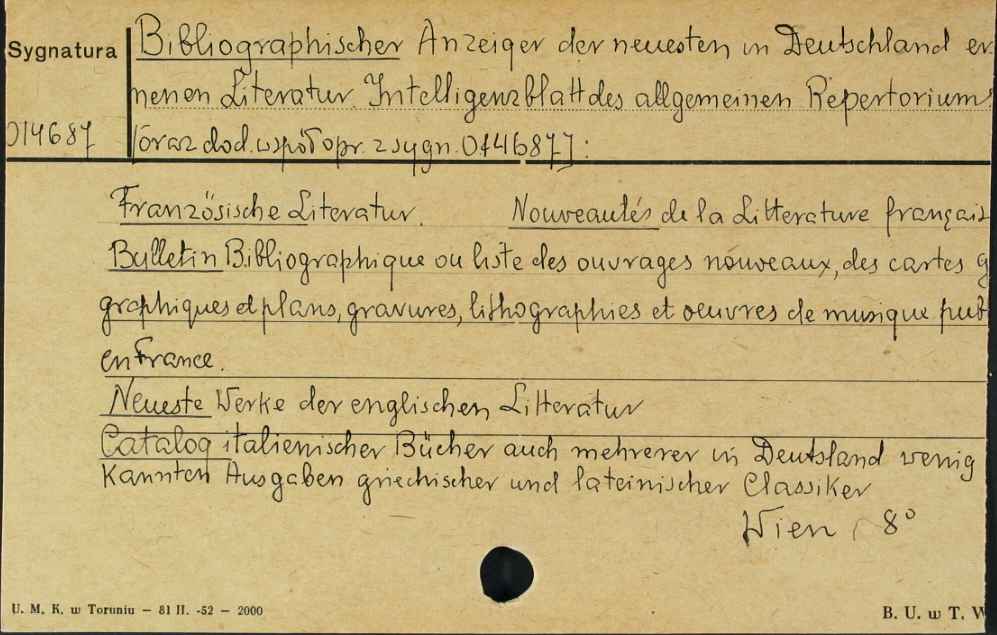 Sygnatura
Bibliographischer Anzeiger der neuesten in Deutschland er
nenen Literatur. Intelligenzblatt des allgemeinen Repertoriums
014687
[oraz dod. współopr. z sygn. 014687] :
Französische Literatur. Nouveautés de la Litterature français
Bulletin Bibliographique ou liste des ouvrages nouveaux, des cartes g
graphiques et plans, gravures, lithographies et oeuvres de musique pub
en France.
Neueste Werke der englischen Litteratur
Catalog italienischer Bücher auch mehrerer in Deutsland wenig
Kannten Ausgaben griechischer und lateinischer Classiker
Wien , 8°
U. M. K. w Toruniu — 81 II. -52 — 2000
B. U. w T. W